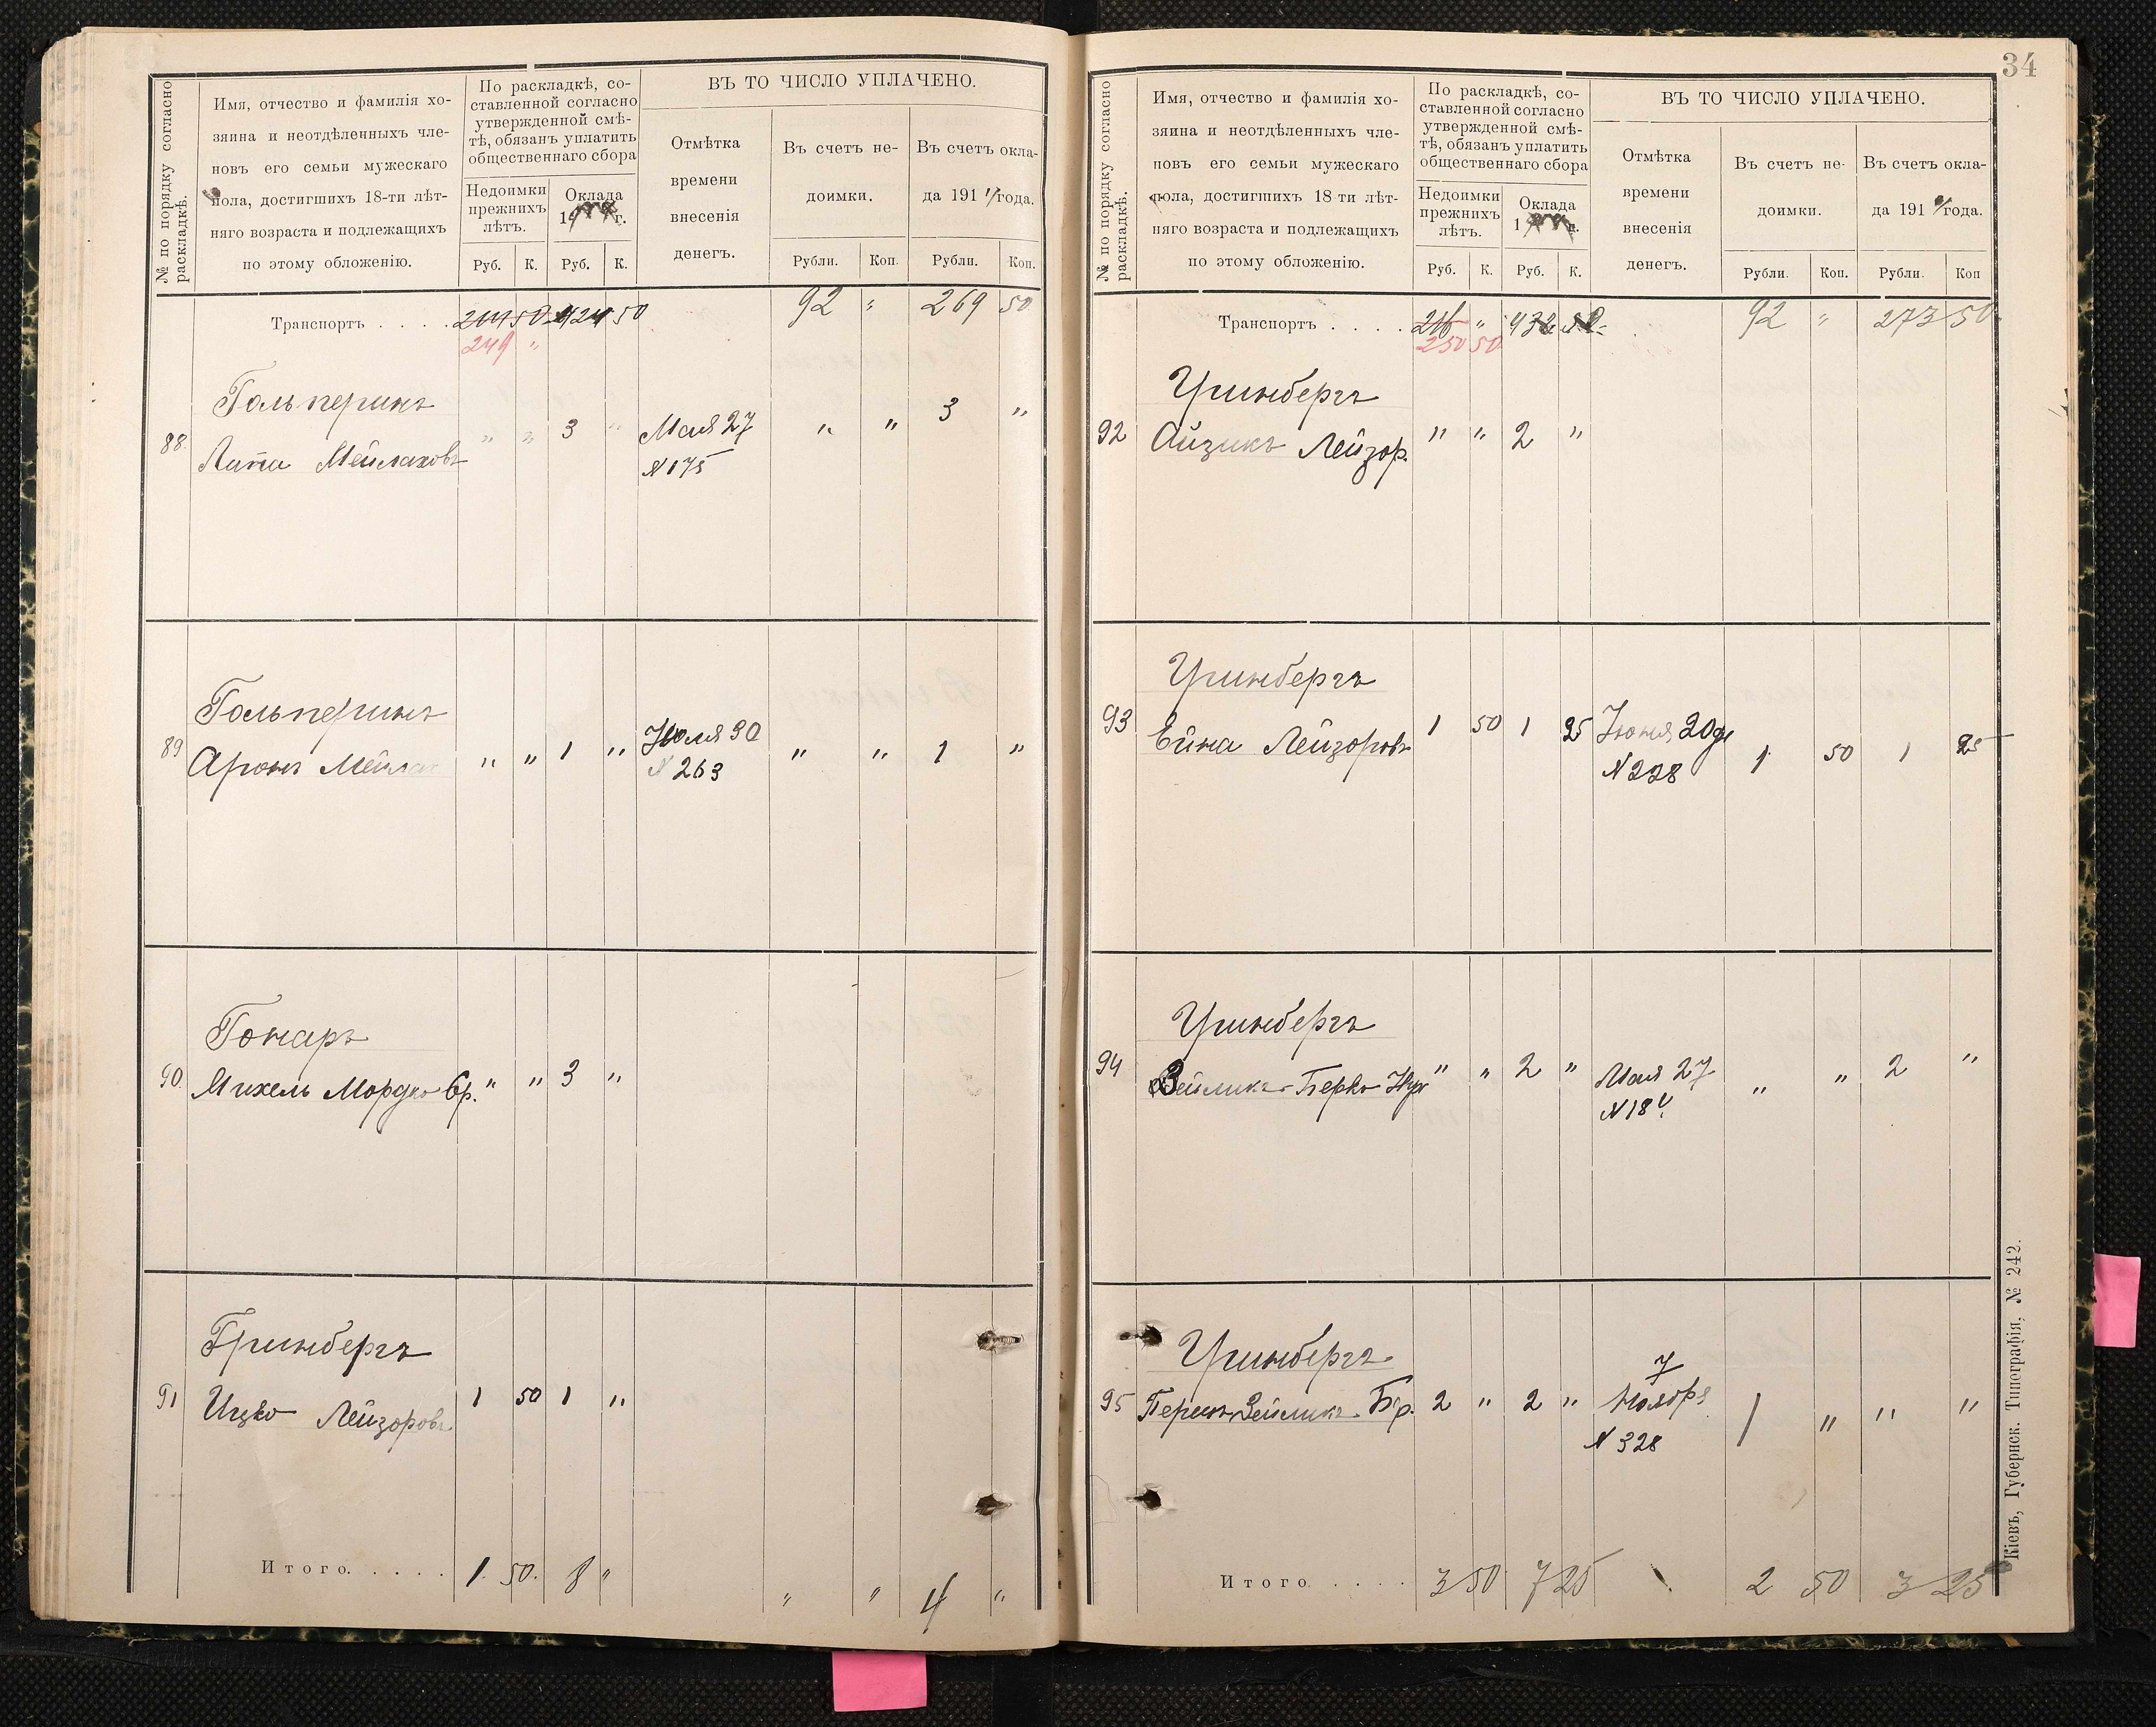 № по порядку согласно
раскладкѣ.
Имя, отчество и фамилія хо-
зяина и неотдѣленныхъ чле-
новъ его семьи мужескаго
пола, достигшихъ 18-ти лѣт-
няго возраста и подлежащихъ
по этому обложенію.
По раскладкѣ, со-
ставленной согласно
утвержденной смѣ-
тѣ, обязанъ уплатить
общественнаго сбора
Недоимки
прежнихъ
лѣтъ.
Оклада
г.
Руб. К. Руб. К.
ВЪ ТО ЧИСЛО УПЛАЧЕНО.
Отмѣтка
времени
внесенія
денегъ.
Въ счетъ не-
доимки.
Въ счетъ окла-
да 191 года.
Рубли. Коп. Рубли. Коп.
Транспортъ . . . . 50 50 92 " 269 50
249 "
Гольперинъ
88. Липа Мейлаховъ " " 3 " Мая 27 " " 3 "
N 175
Гольперинъ
89 Аронъ Мейлах " " 1 " Июля 30 " " 1 "
N 263
Гонаръ
90. Михель Мордко Бр. " " 3 "
Гринбергъ
91 Ицко Лейзоровъ 1 50 1 "
Итого. . . . . 1. 50. 8 " " " 4 "
34
№ по порядку согласно
раскладкѣ.
Имя, отчество и фамилія хо-
зяина и неотдѣленныхъ чле-
новъ его семьи мужескаго
пола, достигшихъ 18 ти лѣт-
няго возраста и подлежащихъ
по этому обложенію.
По раскладкѣ, со-
ставленной согласно
утвержденной смѣ-
тѣ, обязанъ уплатить
общественнаго сбора
Недоимки
прежнихъ
лѣтъ.
Оклада
Руб. К. Руб. К.
ВЪ ТО ЧИСЛО УПЛАЧЕНО.
Отмѣтка
времени
внесенія
денегъ.
Въ счетъ не-
доимки.
Въ счетъ окла-
да 191 года.
Рубли. Коп. Рубли. Коп
Транспортъ . . . . 216 " 432 50 92 " 273 50
250 50
Гринбергъ
92 Айзикъ Лейзор. " " 2 "
Гринбергъ
93 Ейна Лейзоровъ 1 50 1 25 Июня 20 1 50 1 25
N 228
Гринбергъ
94 Зейликъ-Берко " " 2 " Мая 27 " " 2 "
N 184
Гринбергъ
95 Берко-Зейликъ Бр. 2 " 2 " 7 Ноября 1 " " "
N 328
Итого . . . . 3 50 7 25 2 50 3 25
Кіевъ, Губернск. Типеграфія, № 242.